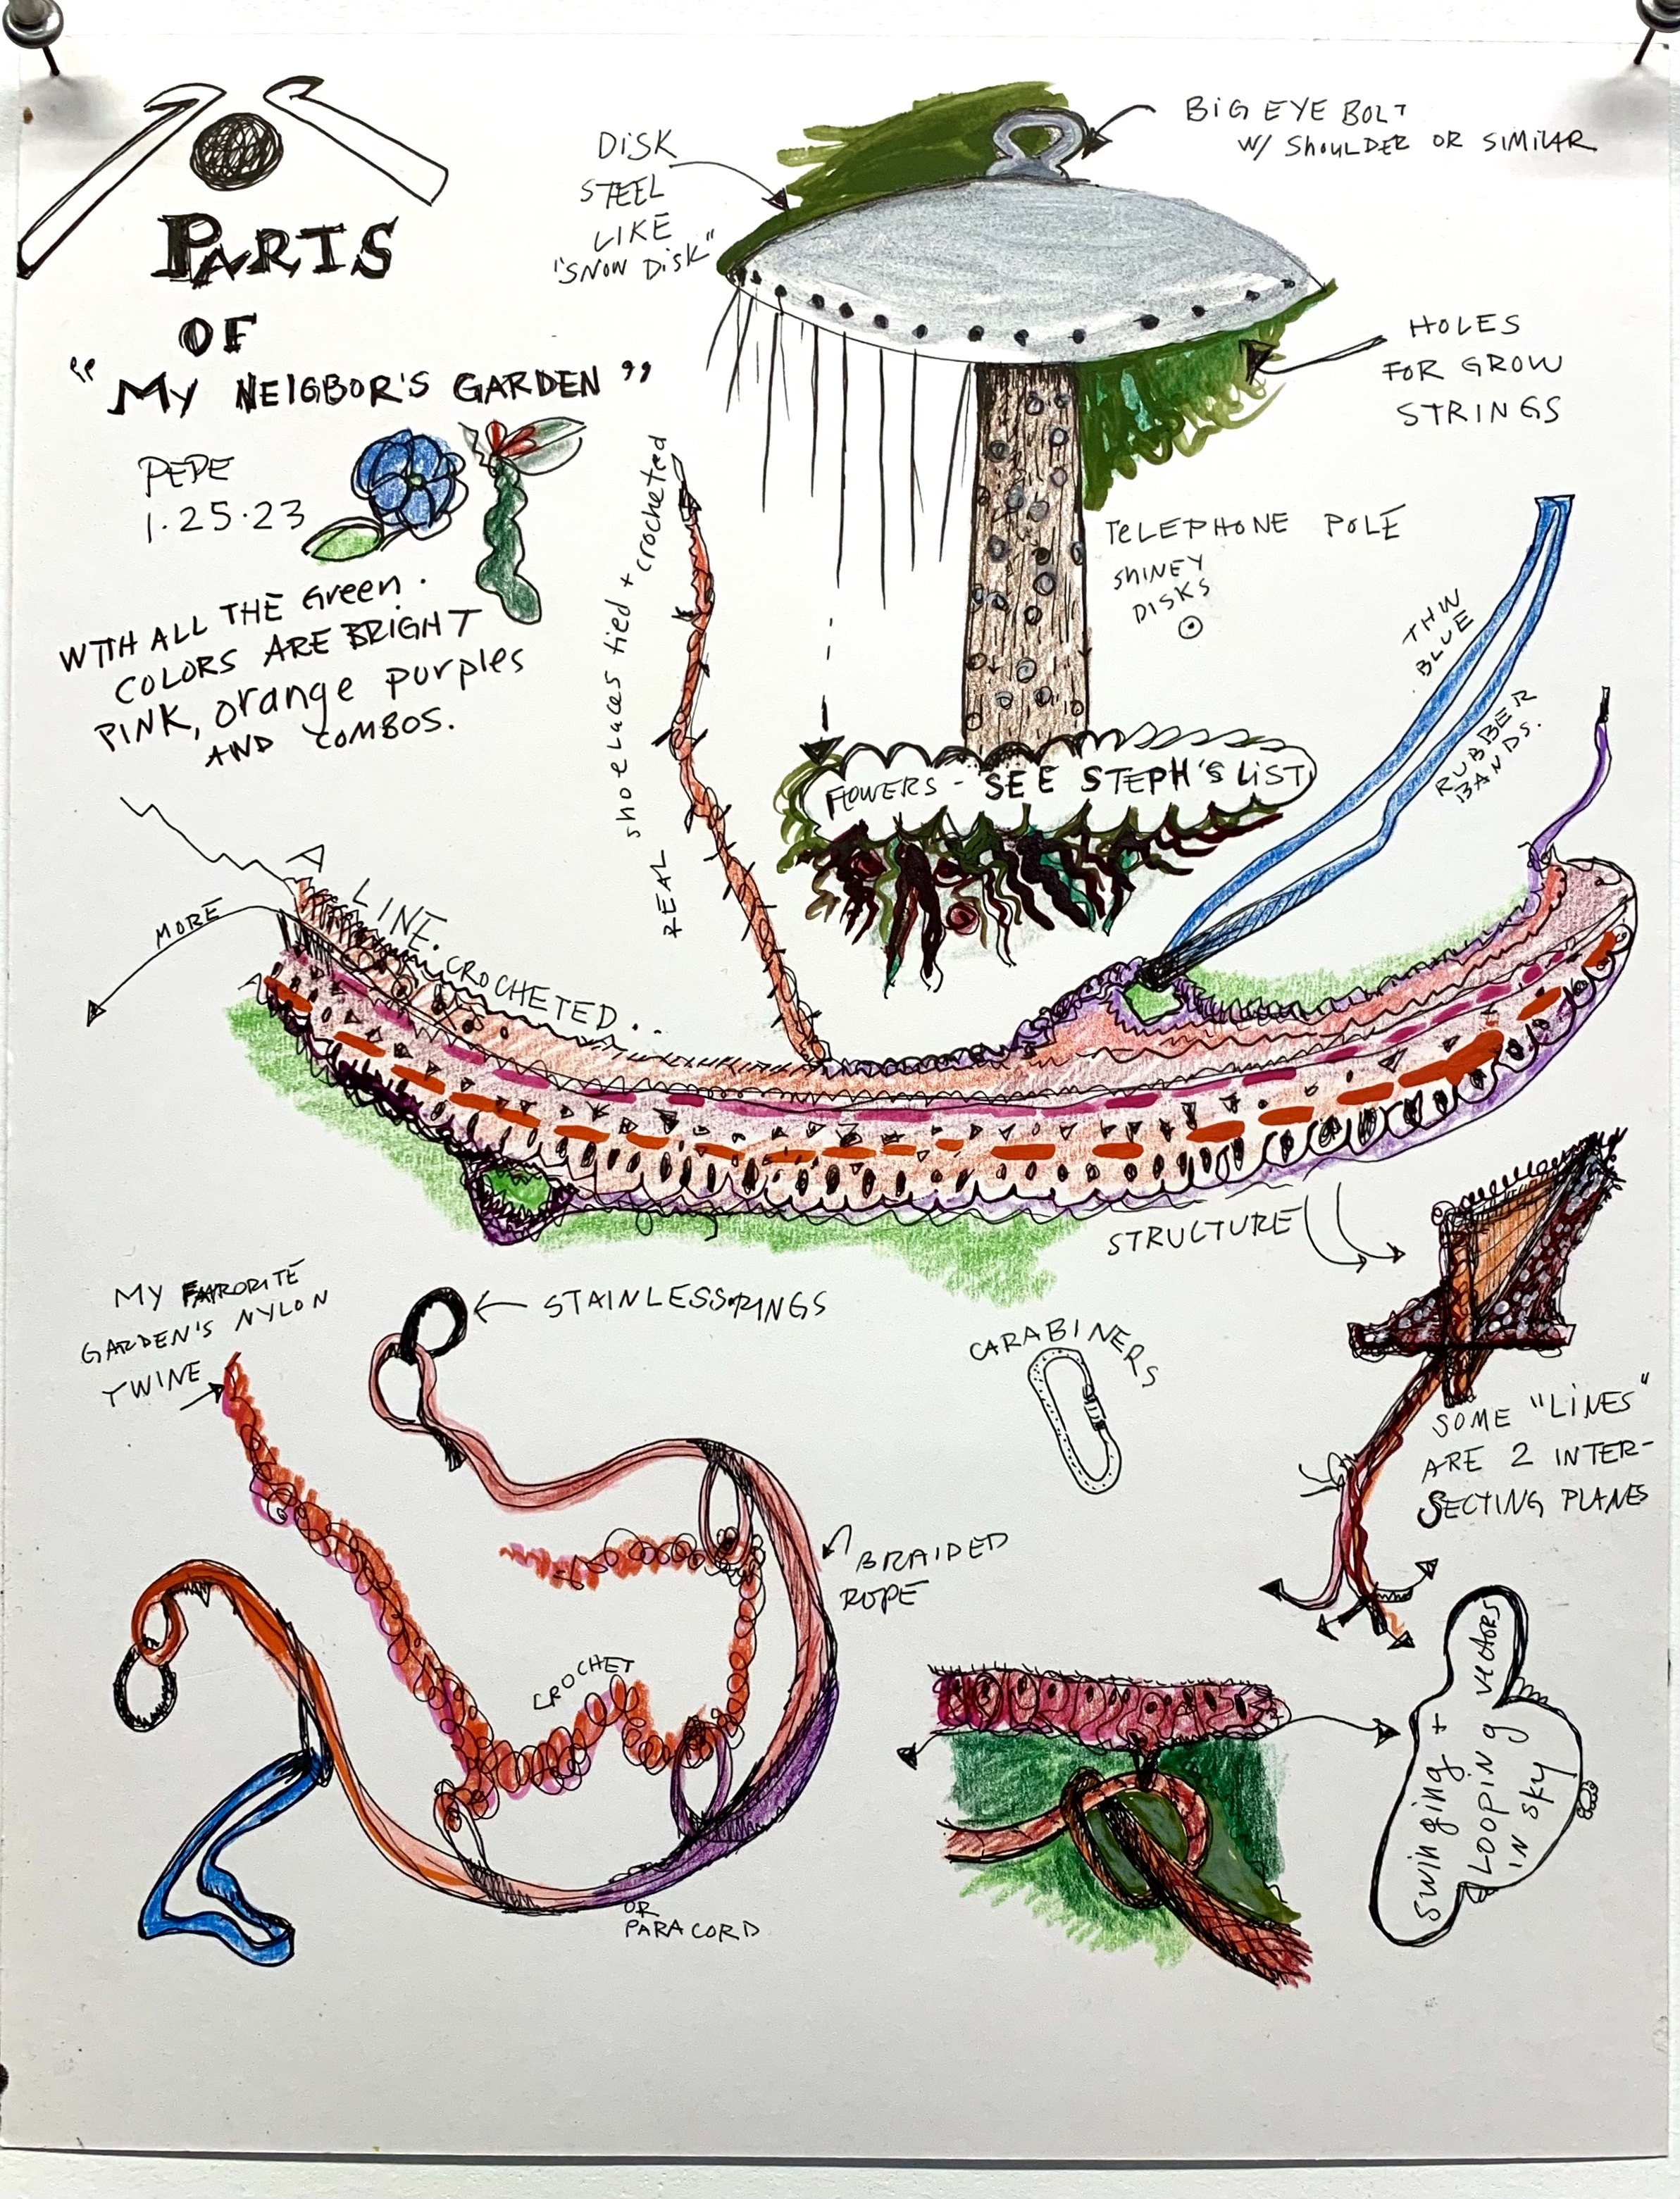 PARTS
OF
"MY NEIGBOR'S GARDEN"
PEPE
1.25.23
WITH ALL THE Green.
COLORS ARE BRIGHT
PINK, orange purples
AND COMBOS.
DISK
STEEL
LIKE
"SNOW DISK"
BIG EYE BOLT
W/ SHOULDER OR SIMILAR
HOLES
FOR GROW
STRINGS
TELEPHONE POLE
SHINEY
DISKS
REAL shoelaces tied + crocheted
FLOWERS - SEE STEPH'S LIST
BLUE
RUBBER
BANDS.
MORE
A LINE. CROCHETED..
STRUCTURE
MY FAVORITE
GARDEN'S NYLON
TWINE
STAINLESS RINGS
CARABINERS
SOME "LINES"
ARE 2 INTER-
SECTING PLANES
BRAIDED
ROPE
CROCHET
OR
PARACORD
swinging +
LOOPING
IN sky